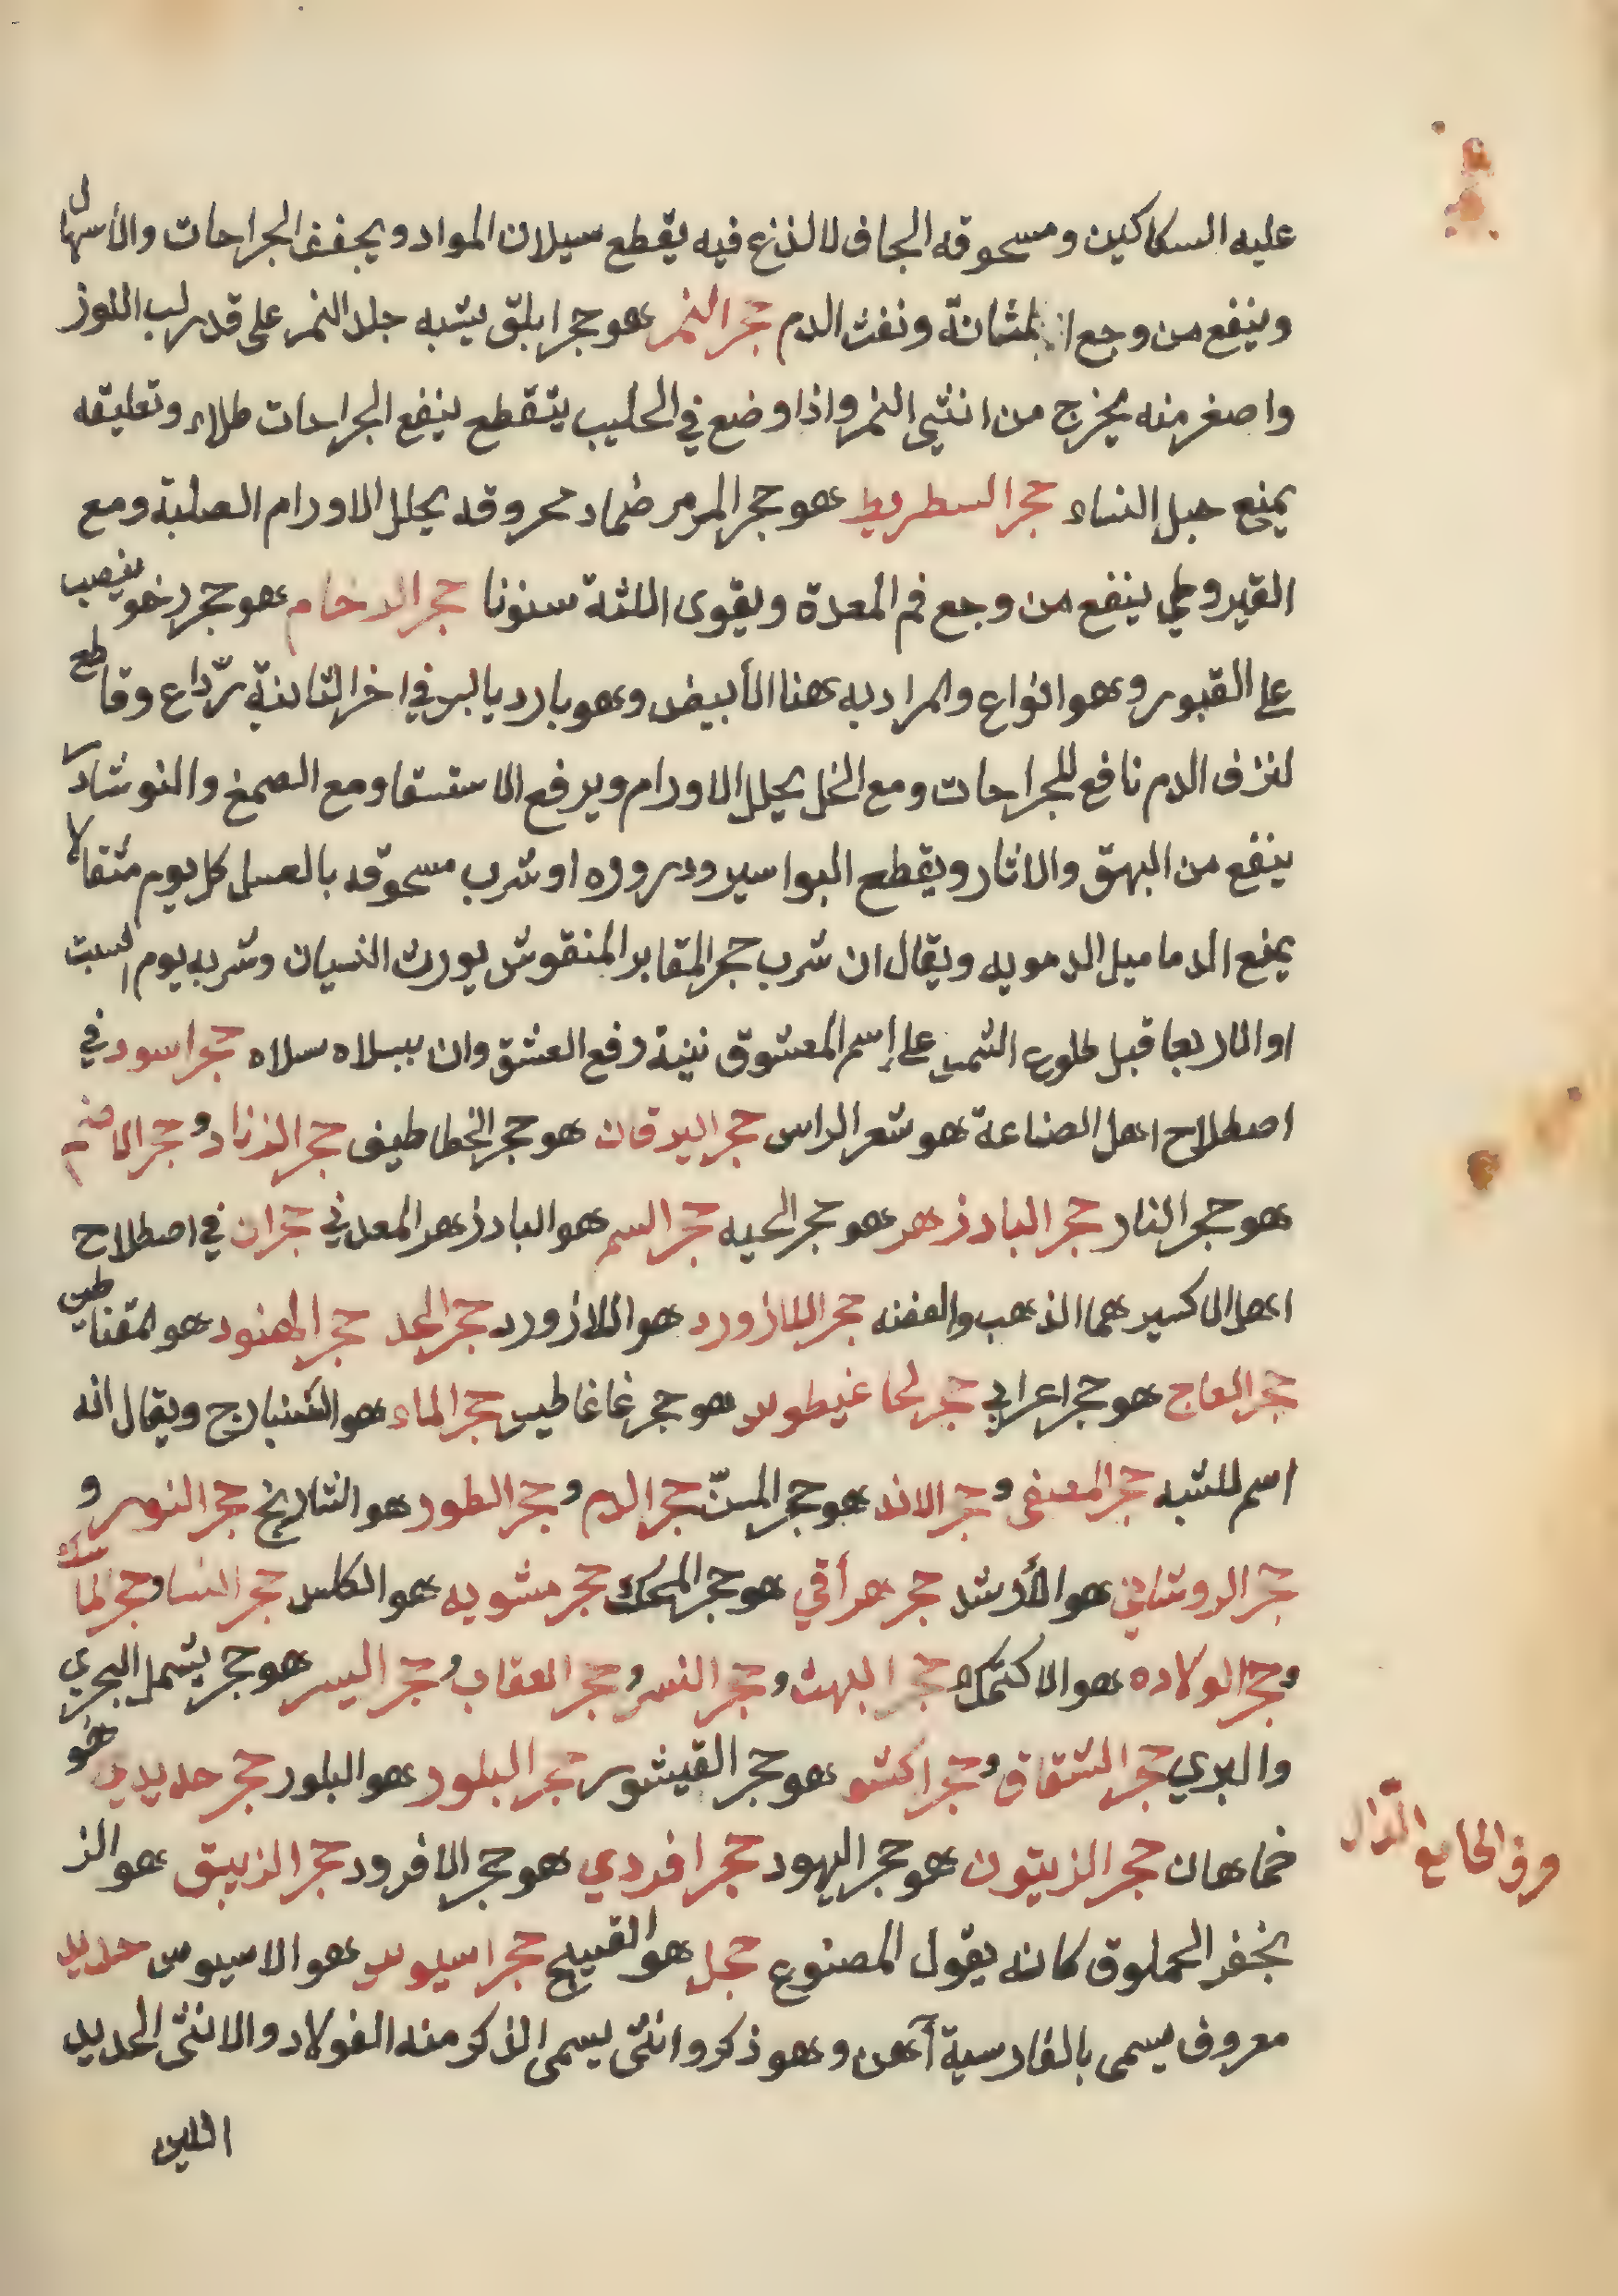 عليه السكاكين ومسحوقه الجاف لا لذع فيه يقطع سيلان المواد ويجفف الجراحات والأسهال
وينفع من وجع المثانة ونفث الدم حجر النمر هو حجر ابلق يشبه جلد النمر على قدر لب اللوز
واصغر منه يخرج من انثى النمر واذا وضع في الحليب يتقطع ينفع الجراحات طلاء وتعليقه
يمنع حبل النساء حجر السطريط هو حجر المرمر ضماد محروقه يحلل الاورام الصلبة ومع
القيروطي ينفع من وجع فم المعدة ويقوى اللثة سنونا حجر الرخام هو حجر رخو ينصب
على القبور وهو انواع والمراد به هنا الأبيض وهو بارد يابس في اخر الثانية ردّاع وقاطع
لنزف الدم نافع للجراحات ومع الخل يحلل الاورام ويرفع الاستسقا ومع الصمغ والنوشادر
ينفع من البهق والاثار ويقطع البواسير ودروره او شرب مسحوقه بالعسل كل يوم مثقالا
يمنع الدماميل الدمويه ويقال ان شرب حجر المقابر المنقوش يورث النسيان وشربه يوم السبت
او الاربعا قبل طلوع الشمس على إسم المعشوق بنية رفع العشق وان يسلاه سلاه حجر اسود في
اصطلاح اهل الصناعة هو شعر الراس حجر اليرقان هو حجر الخطاطيف حجر الزناد وحجر الاصم
هو حجر النار حجر البادزهر هو حجر الحيه حجر السم هو البادزهر المعدني حجران في اصطلاح
اهل الاكسير هما الذهب والفضه حجر اللازورد هو اللازورد حجر الحد حجر الهنود هو المقناطيس
حجر العاج هو حجر اعرابي حجر لحاغيطوس هو حجر غاغاطيس حجر الماء هو الشبارج ويقال انه
اسم للشبه حجر المصفى وحجر الاند هو حجر المسنّ حجر الدم وحجر الطور هو الشاذنج حجر النور و
حجر الروشناني هو الأرشد حجر هرأقي هو حجر المحك حجر مشويه هو الكلس حجر النسا وحجر الماسك
وحجر الولاده هو الاكتمكت حجر البهت وحجر النسر وحجر العقاب وحجر اليسر هو حجر يشمل البحري
والبري حجر الشقاق وحجر اكشو هو حجر القيشور حجر البلور هو البلور حجر حديدي هو
خماهان حجر الزيتون هو حجر اليهود حجر افردي هو حجر الافرود حجر الزيبق هو الز
نجفر المخلوق كانه يقول المصنوع حجل هو القبج حجر اسيوس هو الاسيوس حديد
معروف يسمى بالفارسية آهن وهو ذكر وانثى يسمى الذكر منه الفولاد والانثى الحديد
اللين